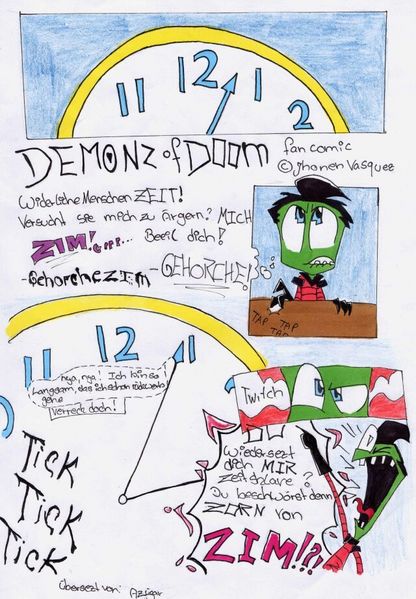 11 12 1 2
DEMONZ of DOOM
fan comic
© jhonen Vasquez
Widerliche Menschen ZEIT!
Versucht sie mich zu ärgern? MICH
ZIM! Grrr... Beeil dich!
-Gehorche ZIM
-GEHORCHE!
TAP TAP
TAP
11 12 1
nya, nya! Ich bin so!
langsam, das ich schon rückwärts
gehe
Verreck doch!
Twitch
Wiedersezt
dich MIR
Zeitsklave?
Du beschwörst den
ZORN von
ZIM!?!
Tick
Tick
Tick
Übersezt von: